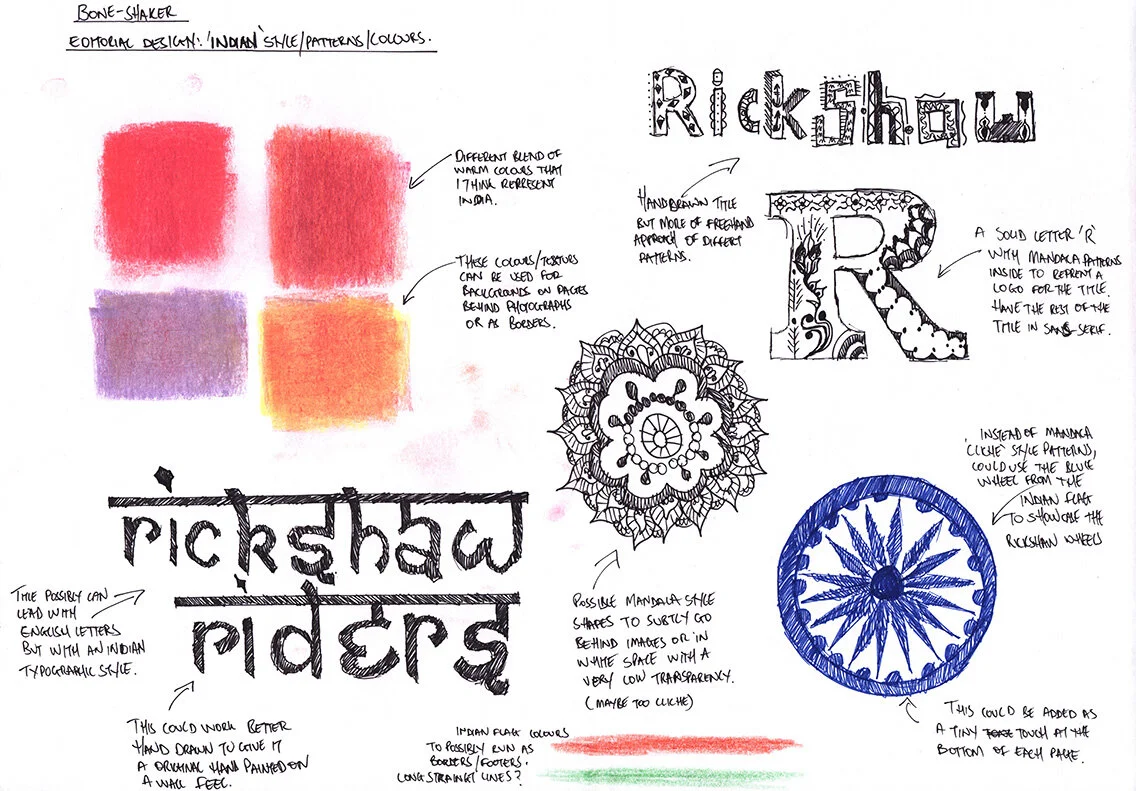 BONE-SHAKER
EDITORIAL DESIGN: 'INDIAN' STYLE/PATTERNS/COLOURS.
DIFFERENT BLEND OF
WARM COLOURS THAT
I THINK REPRESENT
INDIA.
THESE COLOURS/TEXTURS
CAN BE USED FOR
BACKGROUNDS ON PAGES
BEHIND PHOTOGRAPHS
OR AS BORDERS.
Rickshaw
HAND DRAWN TITLE
BUT MORE OF FREEHAND
APPROACH OF DIFFERT
PATTERNS.
R
A SOLID LETTER 'R'
WITH MANDALA PATTERNS
INSIDE TO REPRENT A
LOGO FOR THE TITLE.
HAVE THE REST OF THE
TITLE IN SANS-SERIF.
rickshaw
riders
TITLE POSSIBLY CAN
LEAD WITH
ENGLISH LETTERS
BUT WITH AN INDIAN
TYPOGRAPHIC STYLE.
THIS COULD WORK BETTER
HAND DRAWN TO GIVE IT
A ORIGINAL HAND PAINTED ON
A WALL FEEL.
POSSIBLE MANDALA STYLE
SHAPES TO SUBTLY GO
BEHIND IMAGES OR IN
WHITE SPACE WITH A
VERY LOW TRANSPARENCY.
(MAYBE TOO CLICHE)
INSTEAD OF MANDALA
'CLICHE' STYLE PATTERNS,
COULD USE THE BLUE
WHEEL FROM THE
INDIAN FLAG
TO SHOWCASE THE
RICKSHAW WHEELS
THIS COULD BE ADDED AS
A TINY TOUCH AT THE
BOTTOM OF EACH PAGE.
INDIAN FLAG COLOURS
TO POSSIBLY RUN AS
BORDERS/FOOTERS.
LONG STRAIGHT LINES?